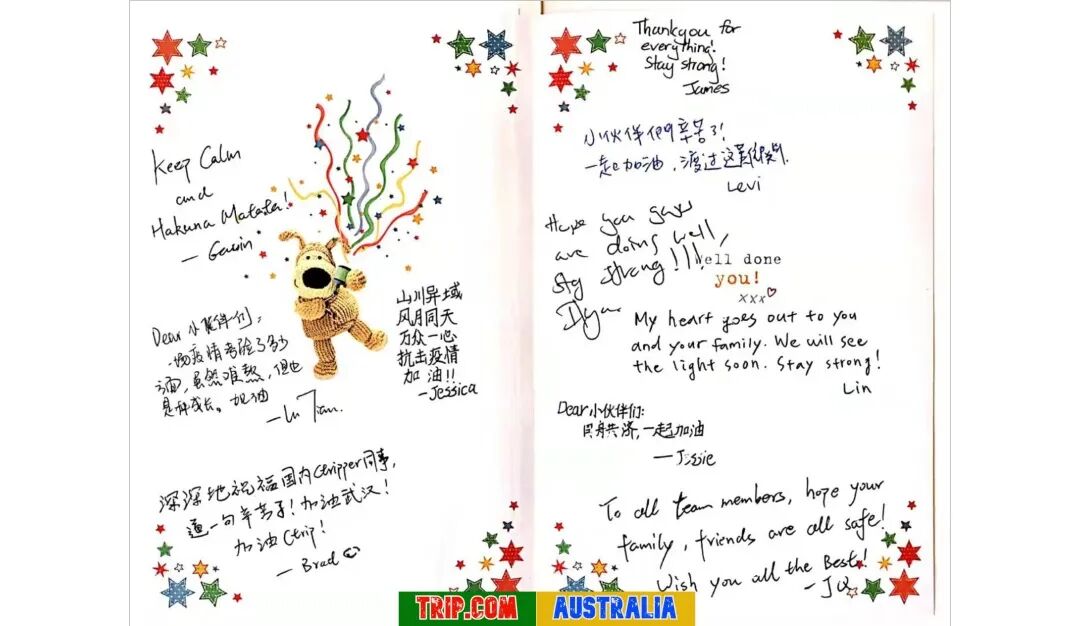 Keep Calm
and
Hakuna Matata!
— Gavin
山川异域
风月同天
万众一心
抗击疫情
加油!!
—Jessica
Dear 小伙伴们,
一场疫情考验了多少
油,虽然难熬,但也
是种成长。加油
— Tian.
深深地祝福国内Ctripper同事,
道一句辛苦了!加油武汉!
加油Ctrip!
— Brad
Thank you for
everything!
Stay strong!
James
小伙伴们辛苦了!
一起加油,渡过这
Levi
Hope you guys
are doing well,
stay strong!!!
Well done
you!
xxx
My heart goes out to you
and your family. We will see
the light soon. Stay strong!
Lin
Dear 小伙伴们:
同舟共济,一起加油
— Jessie
To all team members, hope your
family, friends are all safe!
Wish you all the Best!
TRIP.COM AUSTRALIA